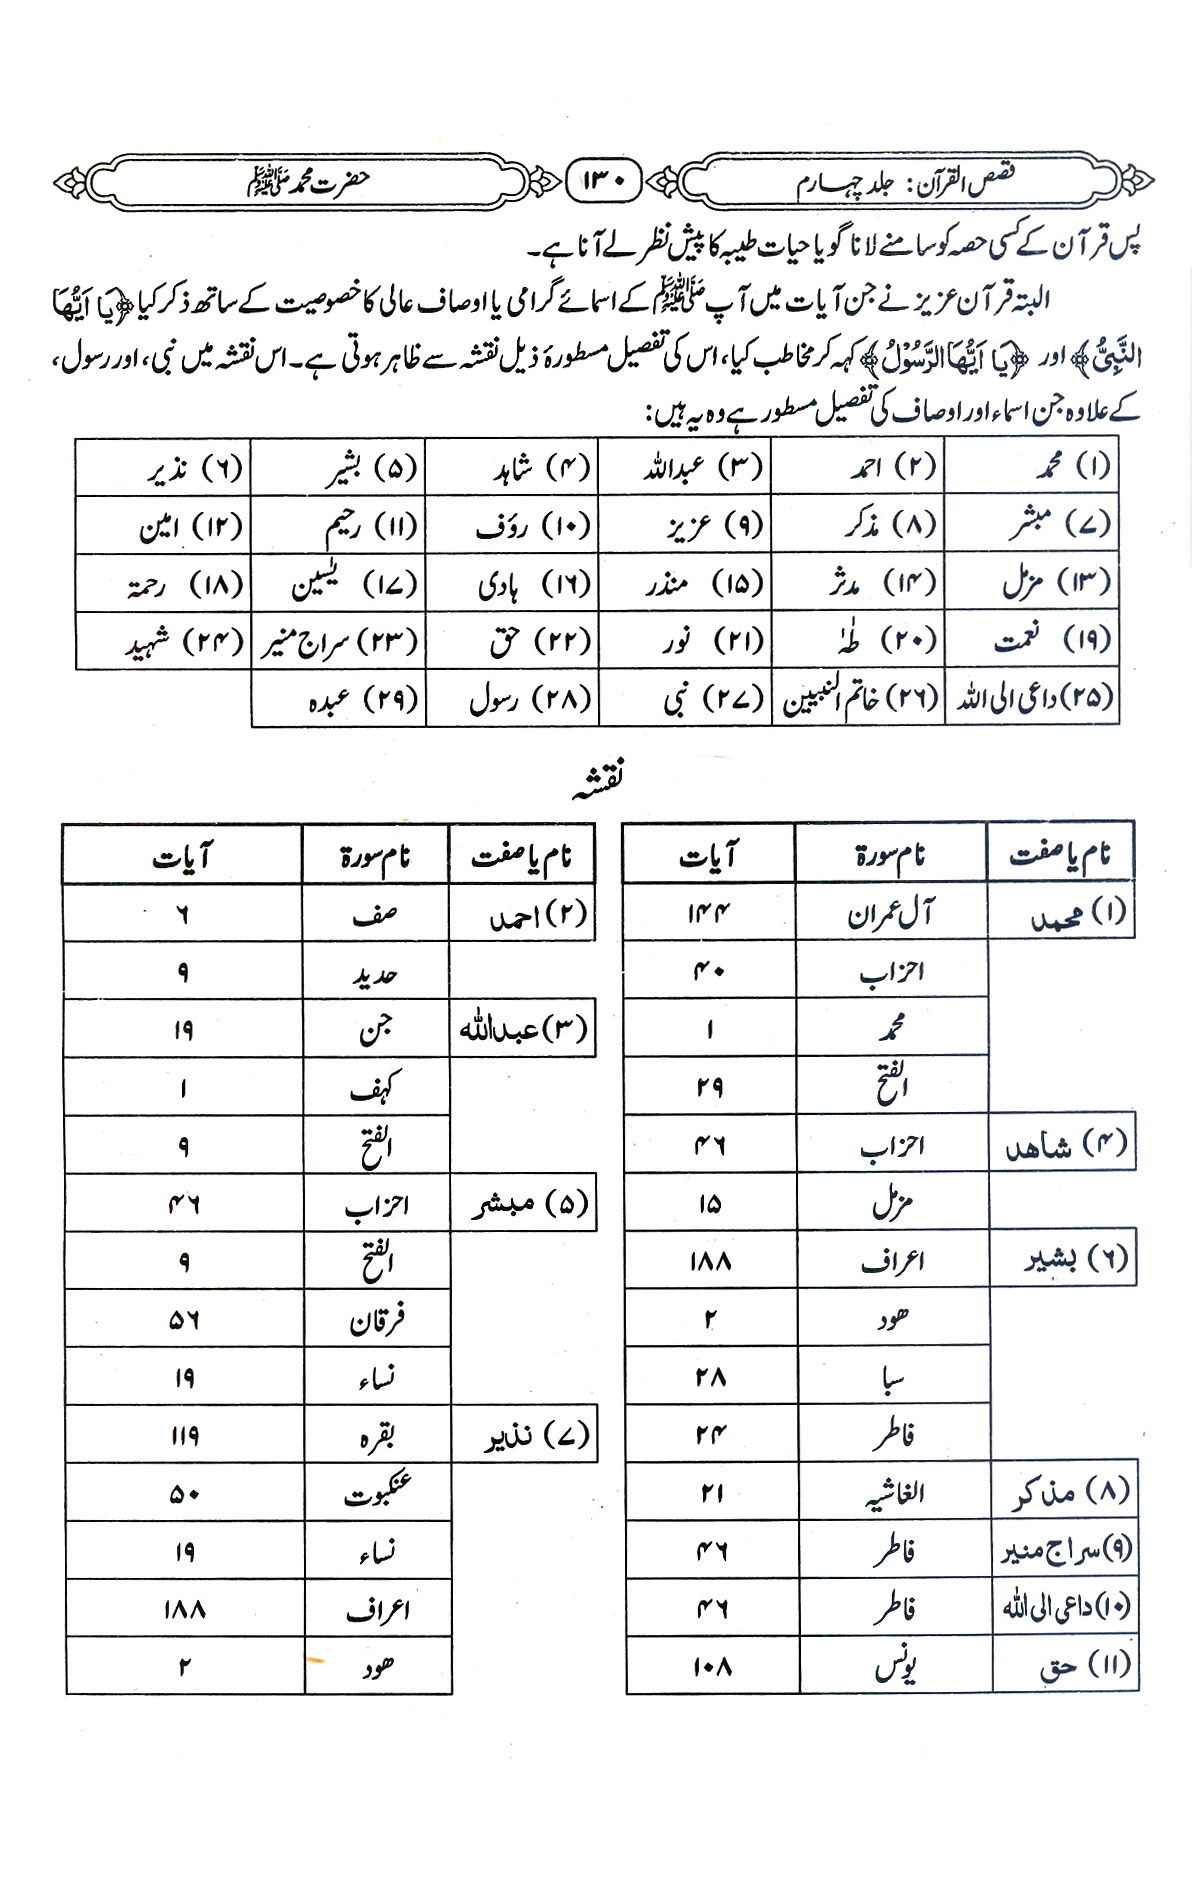 قصص القرآن: جلد چہارم ۱۳۰ حضرت محمد ﷺ
پس قرآن کے کسی حصہ کو سامنے لانا گویا حیات طیبہ کا پیش نظر لے آنا ہے۔
البتہ قرآن عزیز نے جن آیات میں آپ ﷺ کے اسمائے گرامی یا اوصاف عالی کا خصوصیت کے ساتھ ذکر کیا ﴿یَا اَیُّھَا
النَّبِیُّ﴾ اور ﴿یَا اَیُّھَا الرَّسُوْلُ﴾ کہہ کر مخاطب کیا، اس کی تفصیل مسطورۂ ذیل نقشہ سے ظاہر ہوتی ہے۔ اس نقشہ میں نبی، اور رسول،
کے علاوہ جن اسماء اور اوصاف کی تفصیل مسطور ہے وہ یہ ہیں:
(۱) محمد (۲) احمد (۳) عبداللہ (۴) شاہد (۵) بشیر (۶) نذیر
(۷) مبشر (۸) مذکر (۹) عزیز (۱۰) رؤف (۱۱) رحیم (۱۲) امین
(۱۳) مزمل (۱۴) مدثر (۱۵) منذر (۱۶) ہادی (۱۷) یٰسین (۱۸) رحمۃ
(۱۹) نعمت (۲۰) طٰہٰ (۲۱) نور (۲۲) حق (۲۳) سراج منیر (۲۴) شہید
(۲۵) داعی الی اللہ (۲۶) خاتم النبیین (۲۷) نبی (۲۸) رسول (۲۹) عبدہ
نقشہ
نام یا صفت نام سورۃ آیات
(۱) محمد آل عمران ۱۴۴
احزاب ۴۰
محمد ۱
الفتح ۲۹
(۴) شاھد احزاب ۴۶
مزمل ۱۵
(۶) بشیر اعراف ۱۸۸
ھود ۲
سبا ۲۸
فاطر ۲۴
(۸) مذکر الغاشیہ ۲۱
(۹) سراج منیر فاطر ۴۶
(۱۰) داعی الی اللہ فاطر ۴۶
(۱۱) حق یونس ۱۰۸
نام یا صفت نام سورۃ آیات
(۲) احمد صف ۶
حدید ۹
(۳) عبداللہ جن ۱۹
کہف ۱
الفتح ۹
(۵) مبشر احزاب ۴۶
الفتح ۹
فرقان ۵۶
نساء ۱۹
(۷) نذیر بقرہ ۱۱۹
عنکبوت ۵۰
نساء ۱۹
اعراف ۱۸۸
ھود ۲